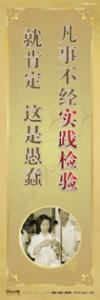 凡事不经实践检验
就肯定 这是愚蠢